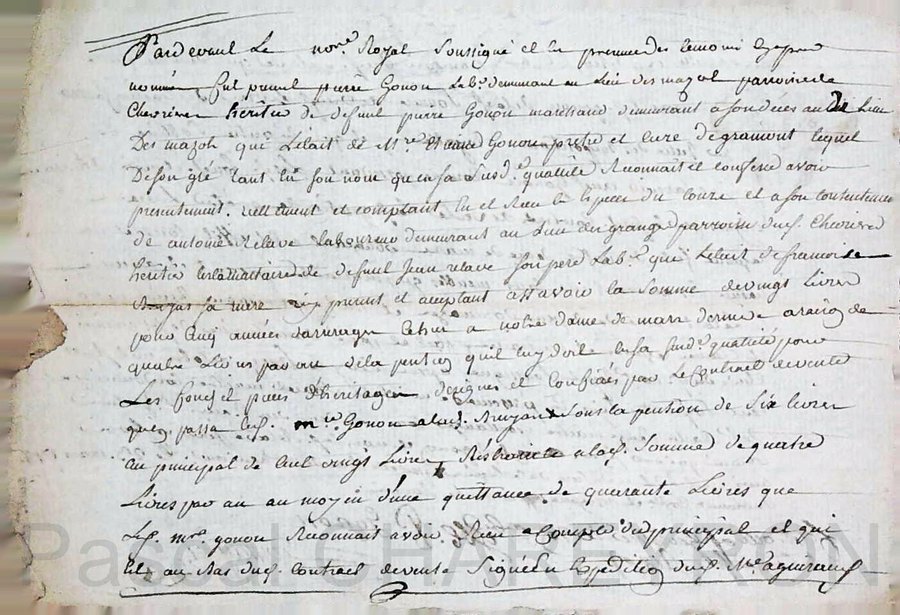 Pardevant Le no.re Royal Soussigné et En presence des temoins
nommés fut present pierre Gonon Lab.r demeurant au Lieu des mazol parroisse de
Chevrieres héritier de defunt pierre Gonon marchand demeurant a son deces au de Lieu
Des mazols qui Letait de M.re Etienne Gonon pretre et Curé de gramont lequel
De son gré tant En son nom qu'en sa Susd.e qualité Reconnait et confesse avoir
presentement. réellement et comptant Eu et Receu En Especes du cours et a son contentement
de antoine relave Laboureur demeurant au Lieu des granges parroisse dud. Chevrieres
héritier de defunt Jean relave Son pere Lab.r qui Letait de francoise
Bruyas sa mere icy present et acceptant assavoir la Somme de vingt Livres
pour Cinq années d'arrerages Echus a notre dame de mars derniere a raison de
quatre Livres par an de la pention qu'il luy doit En sa susd.e qualité pour
Les fonds et pieces d'heritages designés et confinés par Le Contract de vente
qu'en passa led. m.re Gonon a lad. Bruyas Sous la pention de Six livres
au principal de Cent vingt Livres Restrainte a lad. Somme de quatre
Livres par an au moyen d'une quittance de quarante Livres que
Led. m.re gonon Reconnait avoir Receu a Compte du principal et qui
Est au Bas dud. Contract de vente Signé En Expedition dud. M.e
Pascal CHAREYRON